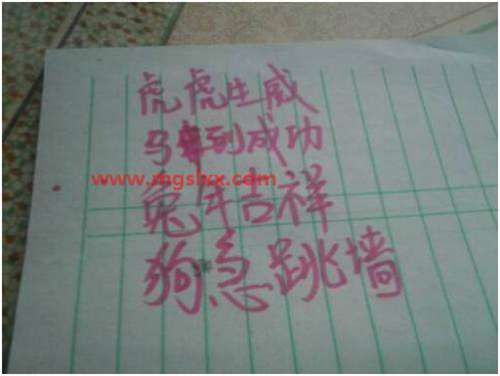 虎虎生威
马到成功
www.mgshxx.com
兔年吉祥
狗急跳墙